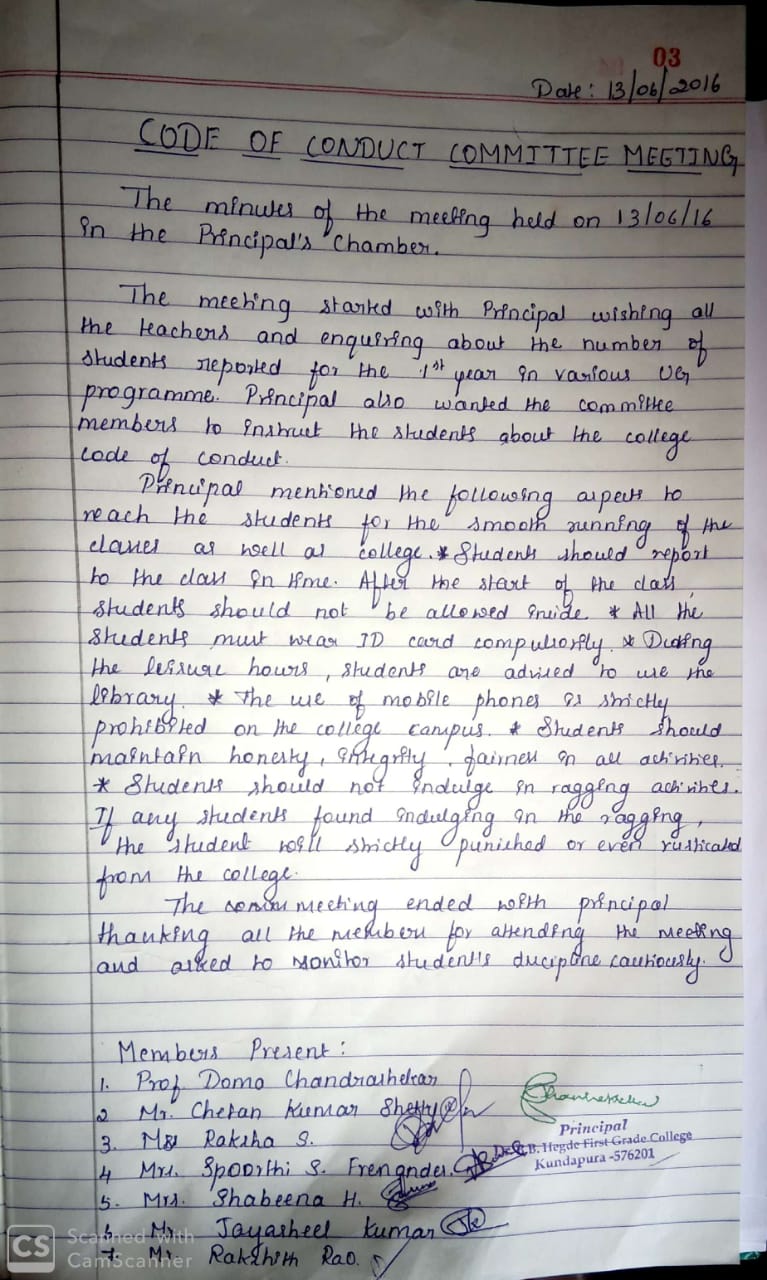 03
Date: 13/06/2016
CODE OF CONDUCT COMMITTEE MEETING
The minutes of the meeting held on 13/06/16
in the Principal's Chamber.
The meeting started with Principal wishing all
the teachers and enquiring about the number of
students reported for the 1st year in various UG
programme. Principal also wanted the committee
members to instruct the students about the college
code of conduct.
Principal mentioned the following aspects to
reach the students for the smooth running of the
classes as well as college. * Students should report
to the class in time. After the start of the class,
students should not be allowed inside. * All the
students must wear ID card compulsorily. * During
the leisure hours, students are advised to use the
library. * The use of mobile phones is strictly
prohibited on the college campus. * Students should
maintain honesty, integrity, fairness in all activities.
* Students should not indulge in ragging activities.
If any students found indulging in the ragging,
the student will strictly punished or even rusticated
from the college.
The meeting ended with principal
thanking all the members for attending the meeting
and asked to monitor student's discipline cautiously.
Members Present:
1. Prof. Doma Chandrashekar
2 Mr. Chetan Kumar Shetty
3. Ms Raksha S.
4 Mrs. Spoorthi S. Fernandes.
5. Mrs. Shabeena H.
6 Mr. Jayasheel Kumar
7. Mr. Rakshith Rao.
Principal
B.B. Hegde First Grade College
Kundapura -576201
CS Scanned with
CamScanner